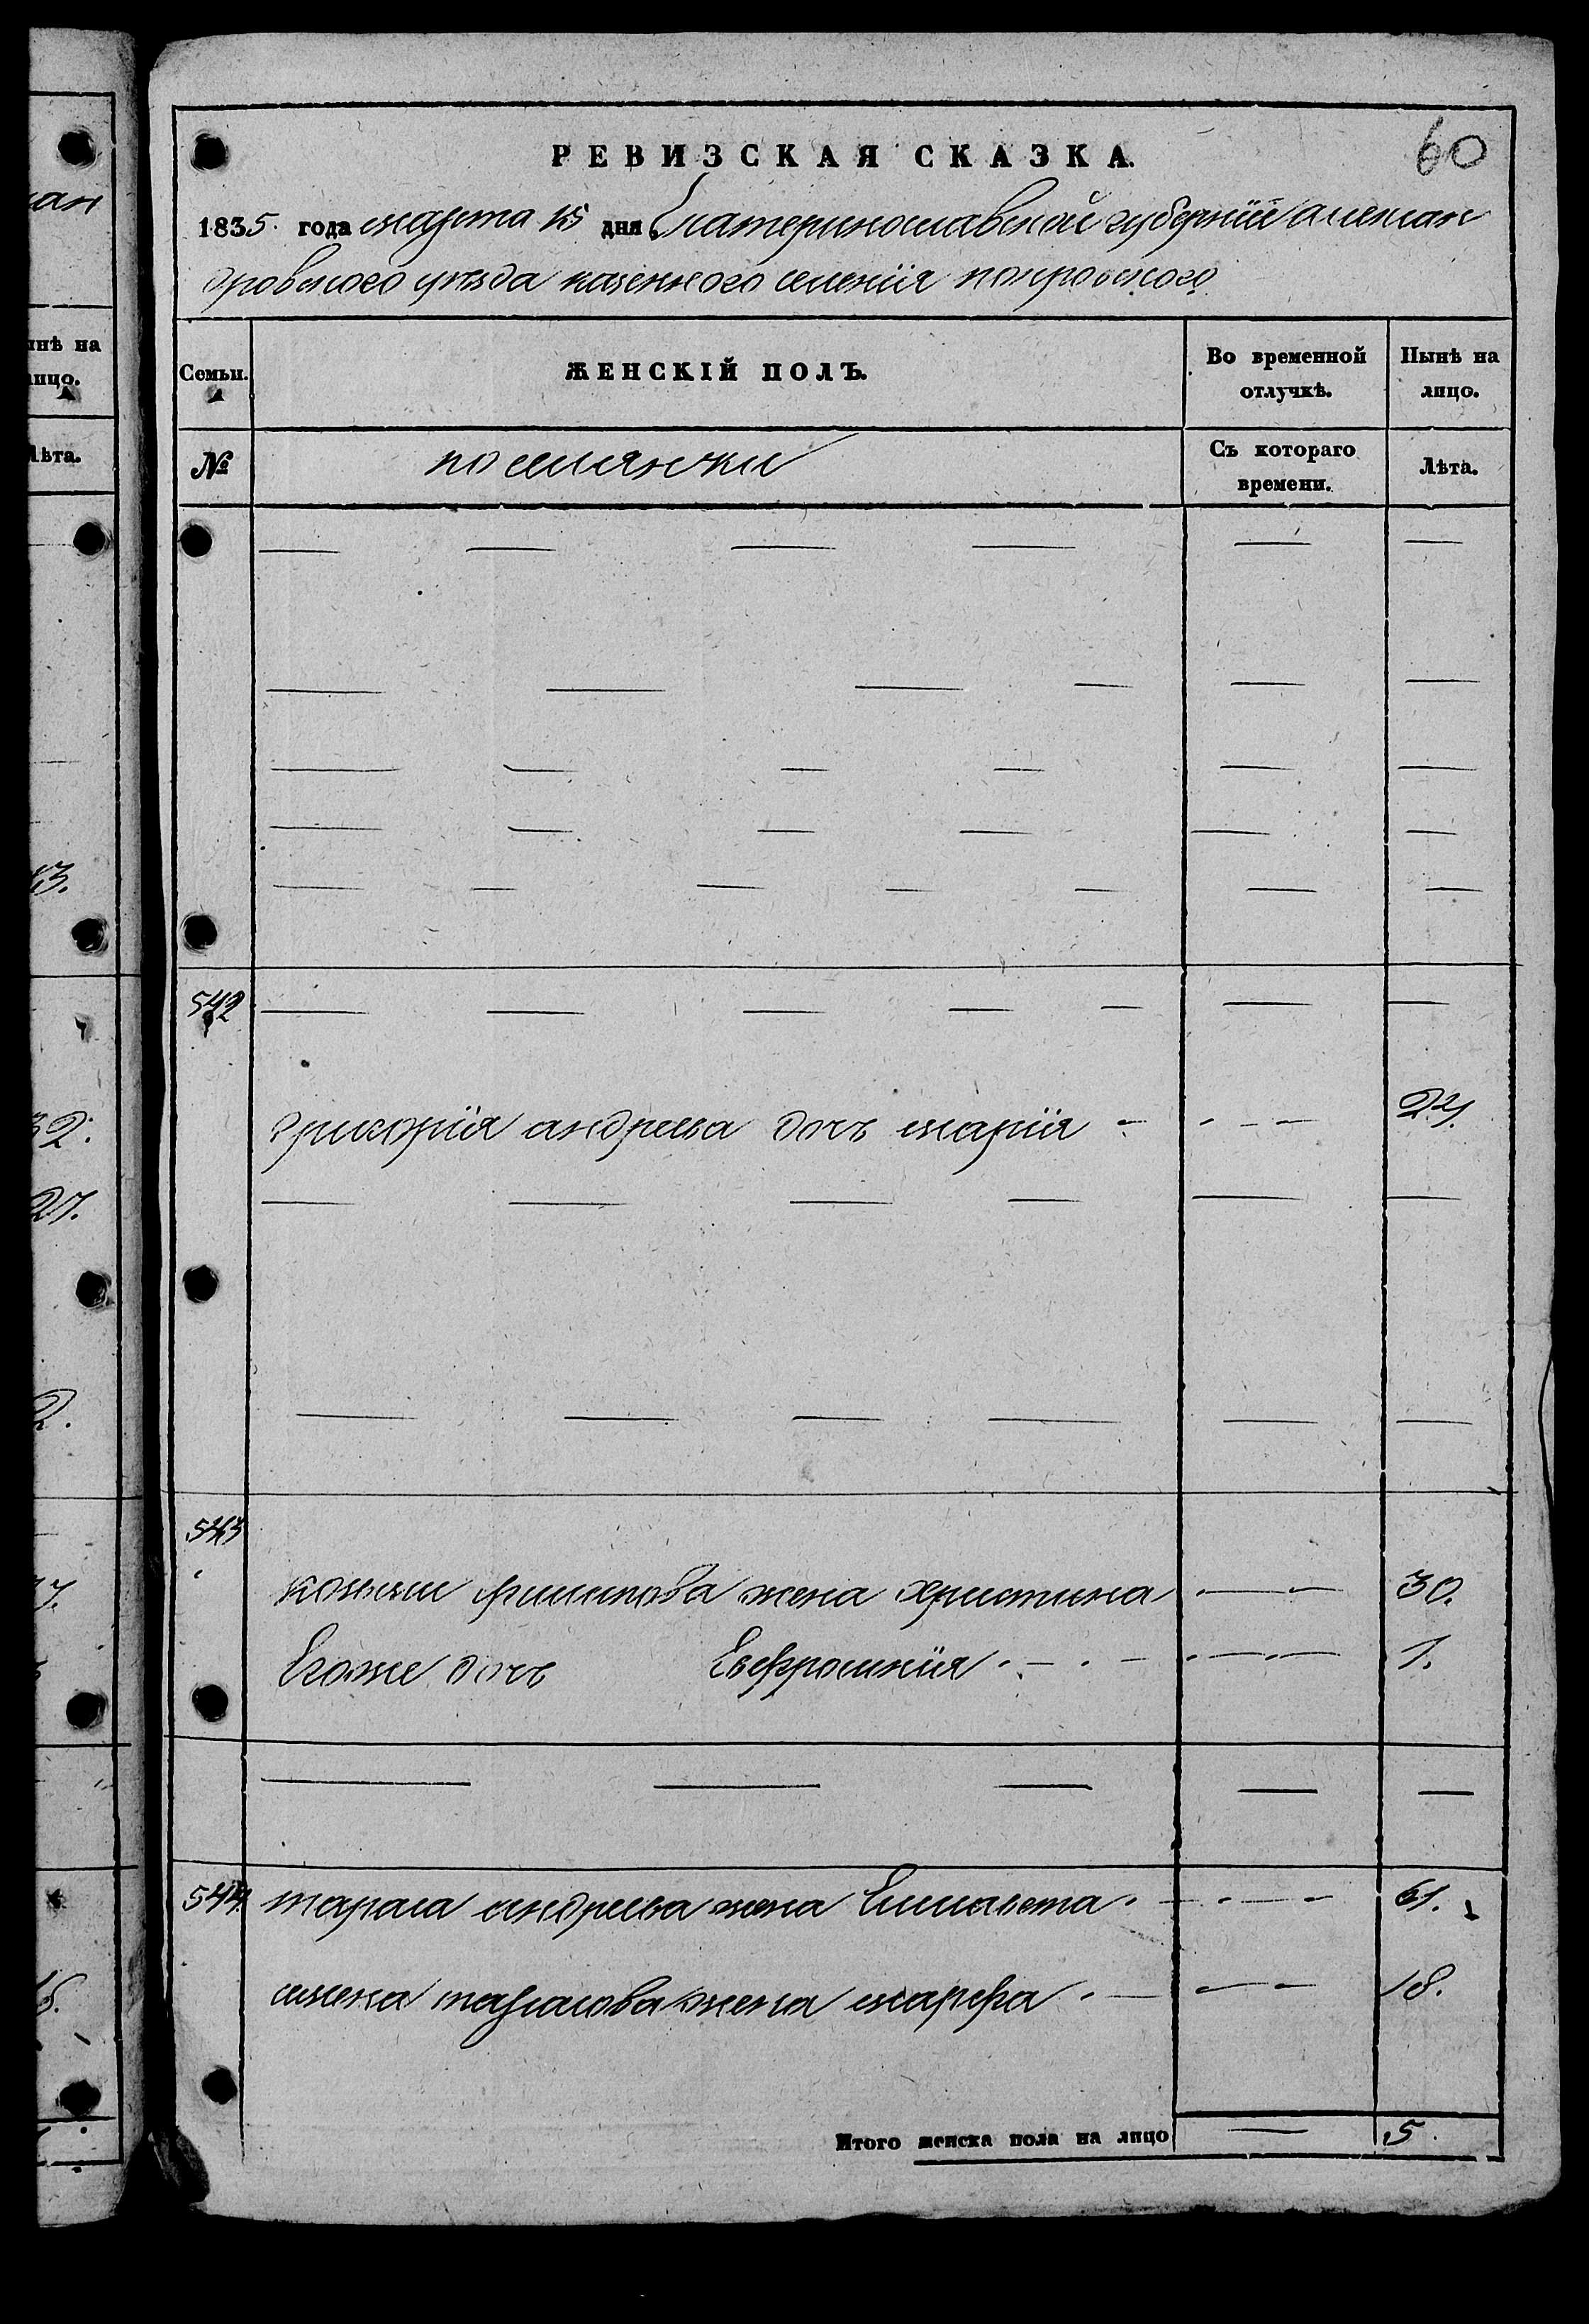 60
РЕВИЗСКАЯ СКАЗКА.
1835. года марта 15 дня Екатеринославской губернїи алексан
дровского уѣзда казенного селенїя покровского
Семьи. ЖЕНСКІЙ ПОЛЪ. Во временной отлучкѣ. Нынѣ на лицо.
№ поселянки Съ котораго времени. Лѣта.
542
григорїя андреева дочь марїя 24.
543
козьмы филипова жена христина 30.
Егоже дочь Евфросинїя 1.
544 тараса андреева жена Елисавета 61.
семена тарасова жена марфа 18.
Итого женска пола на лицо 5.
ан
ынѣ на
лицо.
Лѣта.
3.
32.
27.
2.
7.